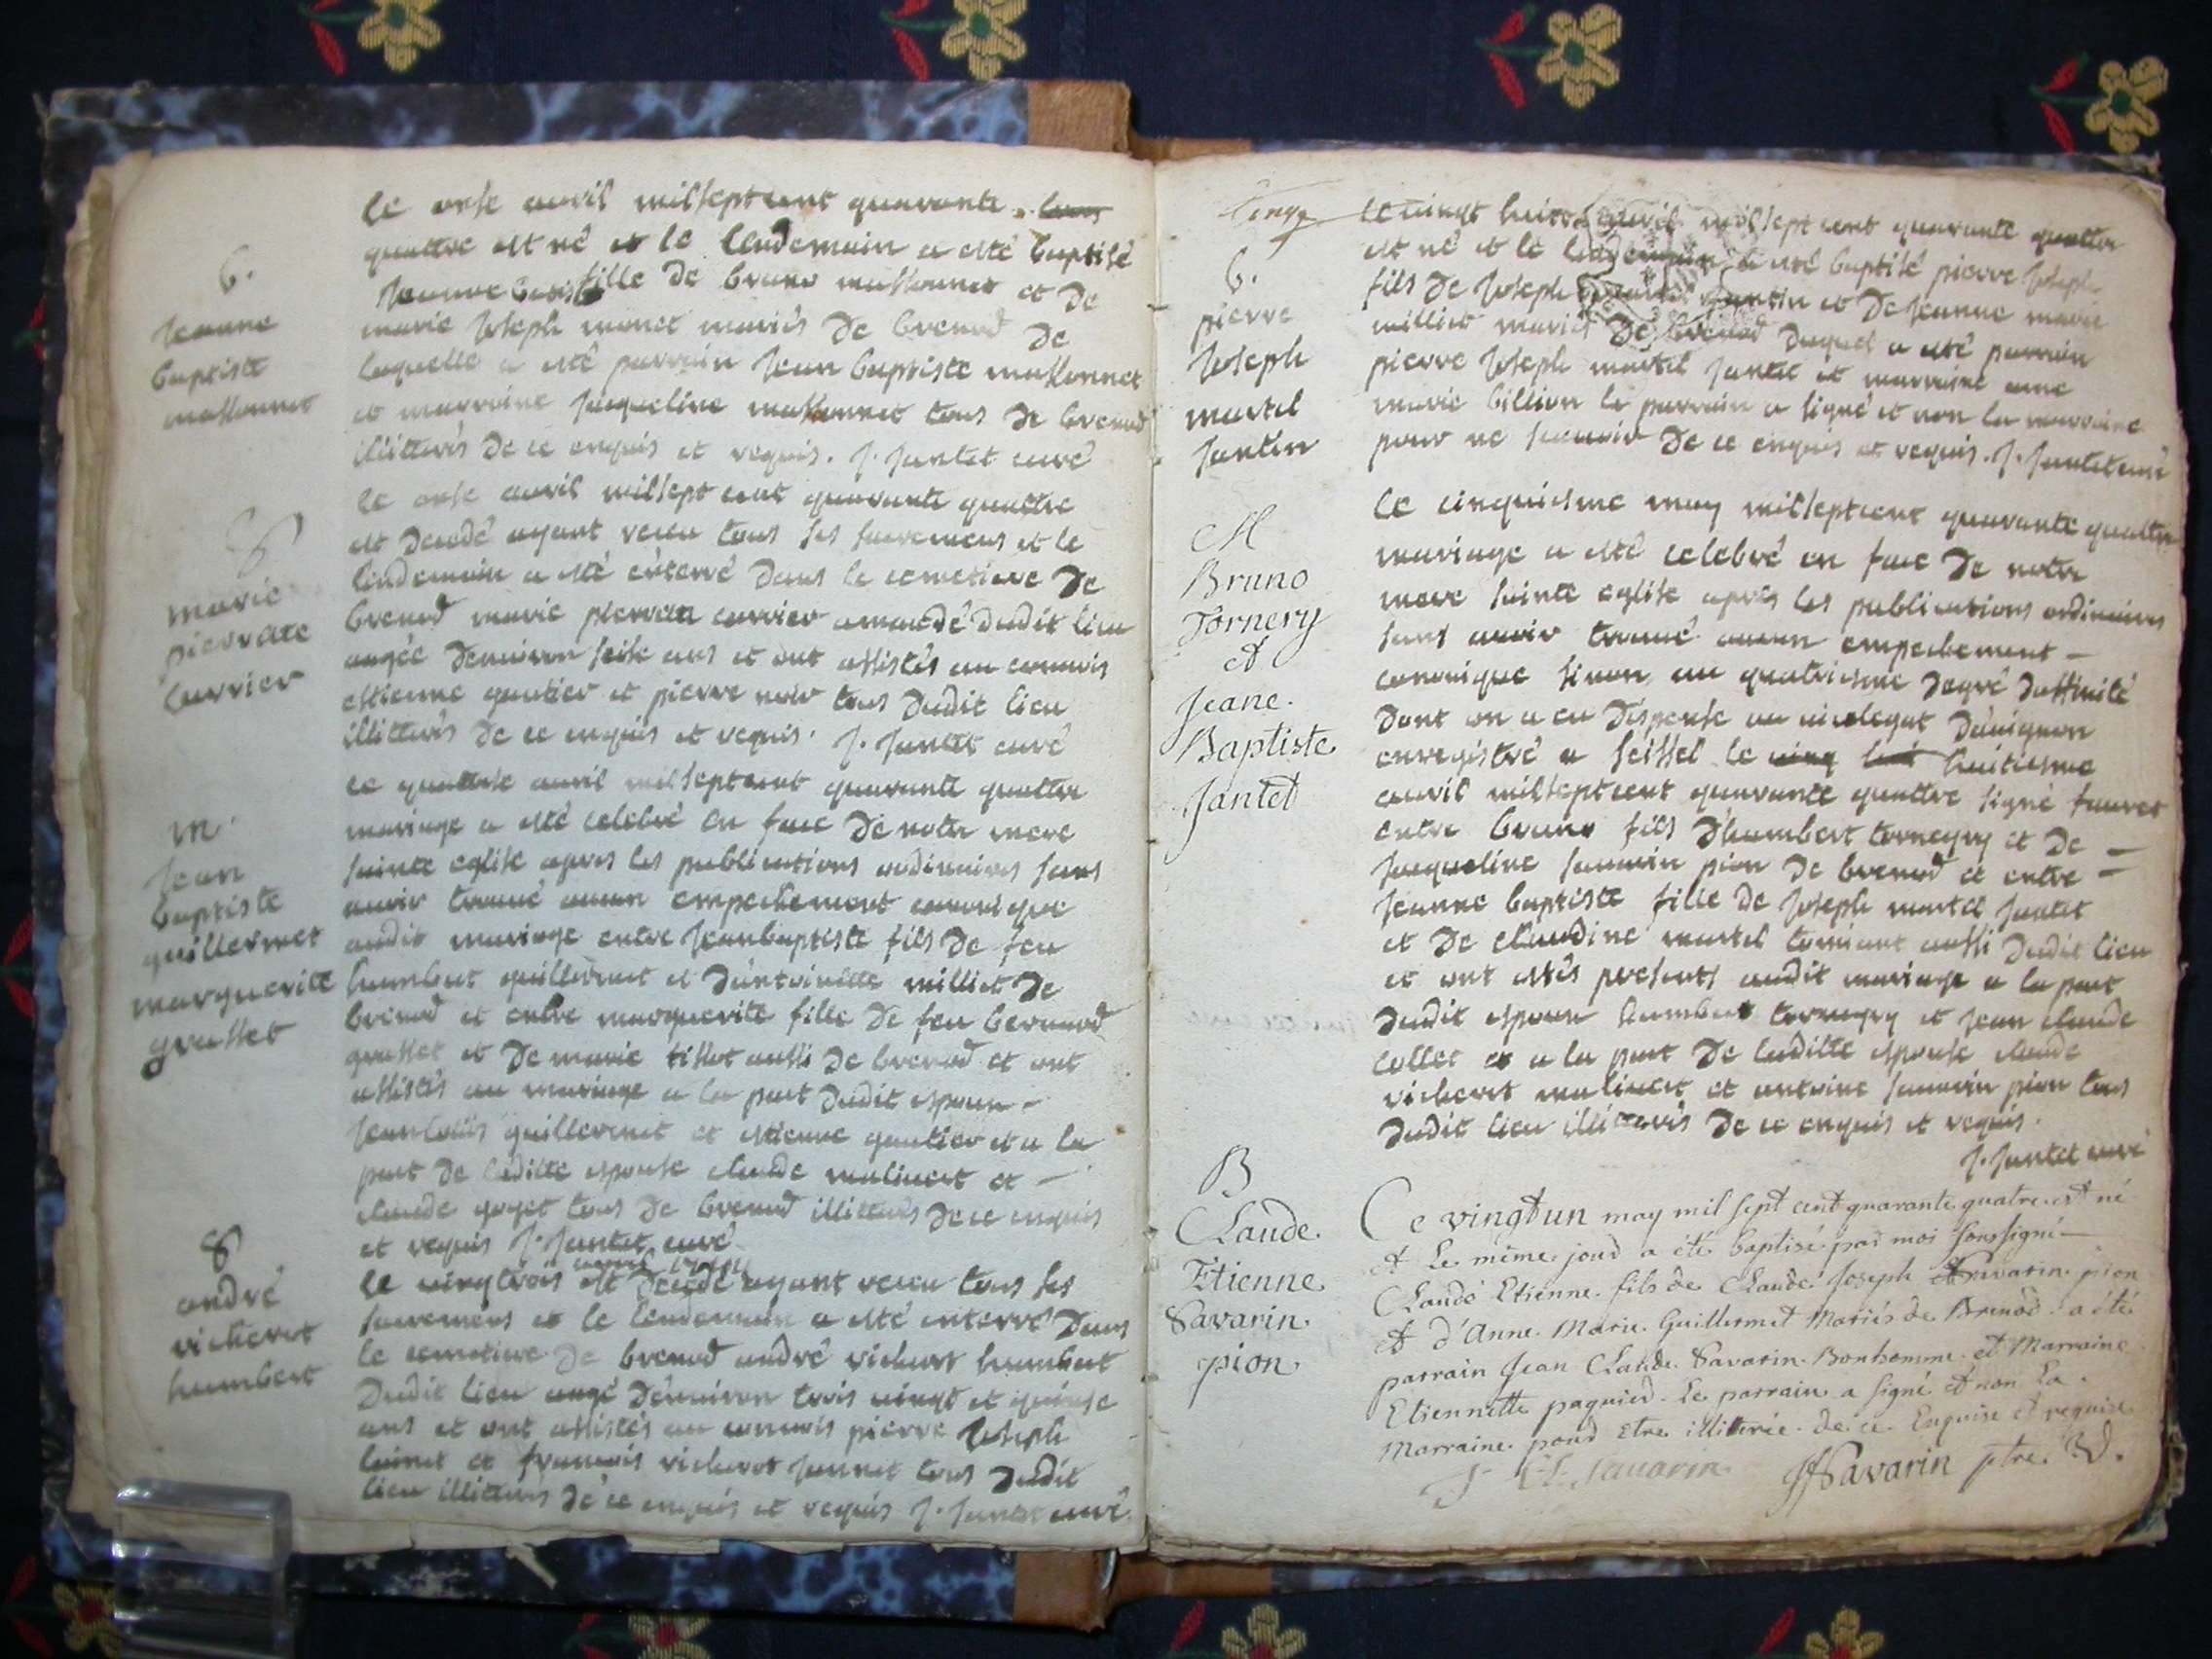 le onse auril milsept cent quarante
quattre est né et le lendemain a esté baptisé
b.
jeanne
baptiste
massonnet
jeanne baptiste fille de bruno massonnet et de
marie joseph monet mariés de brenod de
laquelle a esté parrain jean baptiste massonnet
et marraine jacqueline massonnet tous de brenod
illitterés de ce enquis et requis. j. jantet curé
le onse auril milsept cent quarante quattre
est decedé ayant receu tous ses sacremens et le
lendemain a esté enterré dans le cemetiere de
marie
pierrate
carrier
brenod marie carrier dudit lieu
aagée denuiron seise ans et ont assistés au conuois
estienne gautier et pierre noir tous dudit lieu
illitterés de ce enquis et requis. j. jantet curé
le quattorse auril milseptcent quarante quattre
m.
jean
baptiste
guillermet
marguerite
grasset
mariage a esté celebré en face de notre mere
sainte eglise apres les publications ordinaires sans
auoir trouué aucun empechement canonique
audit mariage entre jeanbaptiste fils de feu
humbert guillermet et d'antoinette milliet de
brenod et entre marguerite fille de feu bernard
grasset et de marie tissot aussi de brenod et ont
assistés au mariage a la part dudit epoux
jeanlouis guillermet et etienne gautier et a la
part de laditte epouse claude molinert et
claude goyet tous de brenod illitterés de ce enquis
et requis j. jantet curé
andré
richerot
humbert
le vingtrois est decedé ayant receu tous ses
sacremens et le lendemain a esté enterré dans
le cemetiere de brenod andré richerot humbert
dudit lieu aagé denuiron trois vingt et quinse
ans et ont assistés au conuois pierre joseph
et francois richerot jannet tous dudit
lieu illitterés de ce enquis et requis j. jantet curé
le vingt huit auril milsept cent quarante quattre
b.
pierre
joseph
martel
jantin
est né et le lendemain a esté baptisé pierre joseph
fils de joseph martel jantin et de jeanne marie
milliet mariés de brenod duquel a esté parrain
pierre joseph martel jantet et marraine anne
marie billion le parrain a signé et non la marraine
pour ne scauoir de ce enquis et requis. j. jantet curé
M
Bruno
Tornery
et
Jeane.
Baptiste
Jantet
le cinquiesme may milseptcent quarante quattre
mariage a esté celebré en face de notre
mere sainte eglise aprés les publications ordinaires
sans auoir trouué aucun empechement
canonique sinon au quatriesme degré daffinité
dont on a eu dispense au vicelegat dauignon
enregistré a seissel le huitiesme
auril milseptcent quarante quattre signé
entre bruno fils dhumbert tornery et de
jacqueline sauarin pion de brenod et entre
jeanne baptiste fille de joseph martel jantet
et de claudine martel aussi dudit lieu
et ont estés presents audit mariage a la part
dudit epoux humbert tornery et jean claude
collet et a la part de laditte epouse claude
richerot molinert et antoine sauarin pion tous
dudit lieu illitterés de ce enquis et requis.
j. jantet curé
B
Claude
Etienne
Savarin
pion
Ce vingt un may mil sept cent quarante quatre est né
et le même jour a été baptisé par moi soussigné
Claude Etienne fils de Claude Joseph Savarin pion
et d'Anne Marie Guillermet Mariés de Brenod a été
parrain Jean Claude Savarin Bonhomme et Marraine
Etiennette paquier Le parrain a signé et non La
Marraine pour être illiterée de ce Enquise et requise
Savarin JSavarin ptre. V.